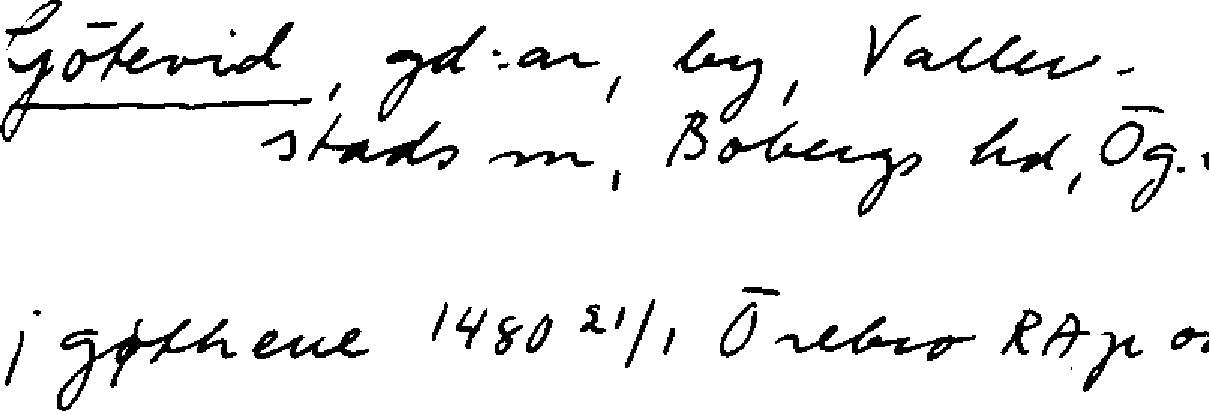 Gjötevid, gd:ar, by, Valler-
stads sn, Bobergs hd, Ög.
j gøtheue 1480 21/1 Örebro RAp or